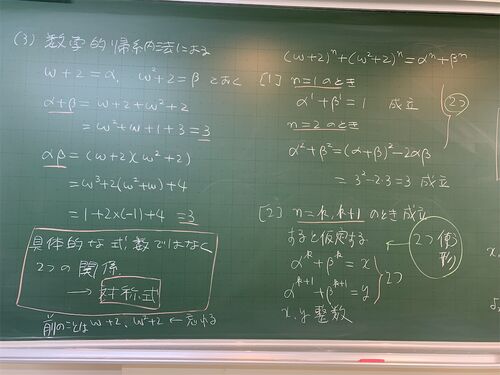 (3) 数学的帰納法による
ω+2=α, ω²+2=β とおく
α+β=ω+2+ω²+2
=ω²+ω+1+3=3
αβ=(ω+2)(ω²+2)
=ω³+2(ω²+ω)+4
=1+2×(-1)+4=3
具体的な式数ではなく
2つの関係
→ 対称式
前のことはω+2、ω²+2 ← 忘れる
(ω+2)ⁿ+(ω²+2)ⁿ=αⁿ+βⁿ
[1] n=1のとき
α¹+β¹=1 成立
n=2のとき
α²+β²=(α+β)²-2αβ
=3²-2・3=3 成立
2つ
[2] n=k, k+1 のとき成立
すると仮定する
αᵏ+βᵏ=x
αᵏ⁺¹+βᵏ⁺¹=y
2つ
x,y 整数
← 2つ使う
形